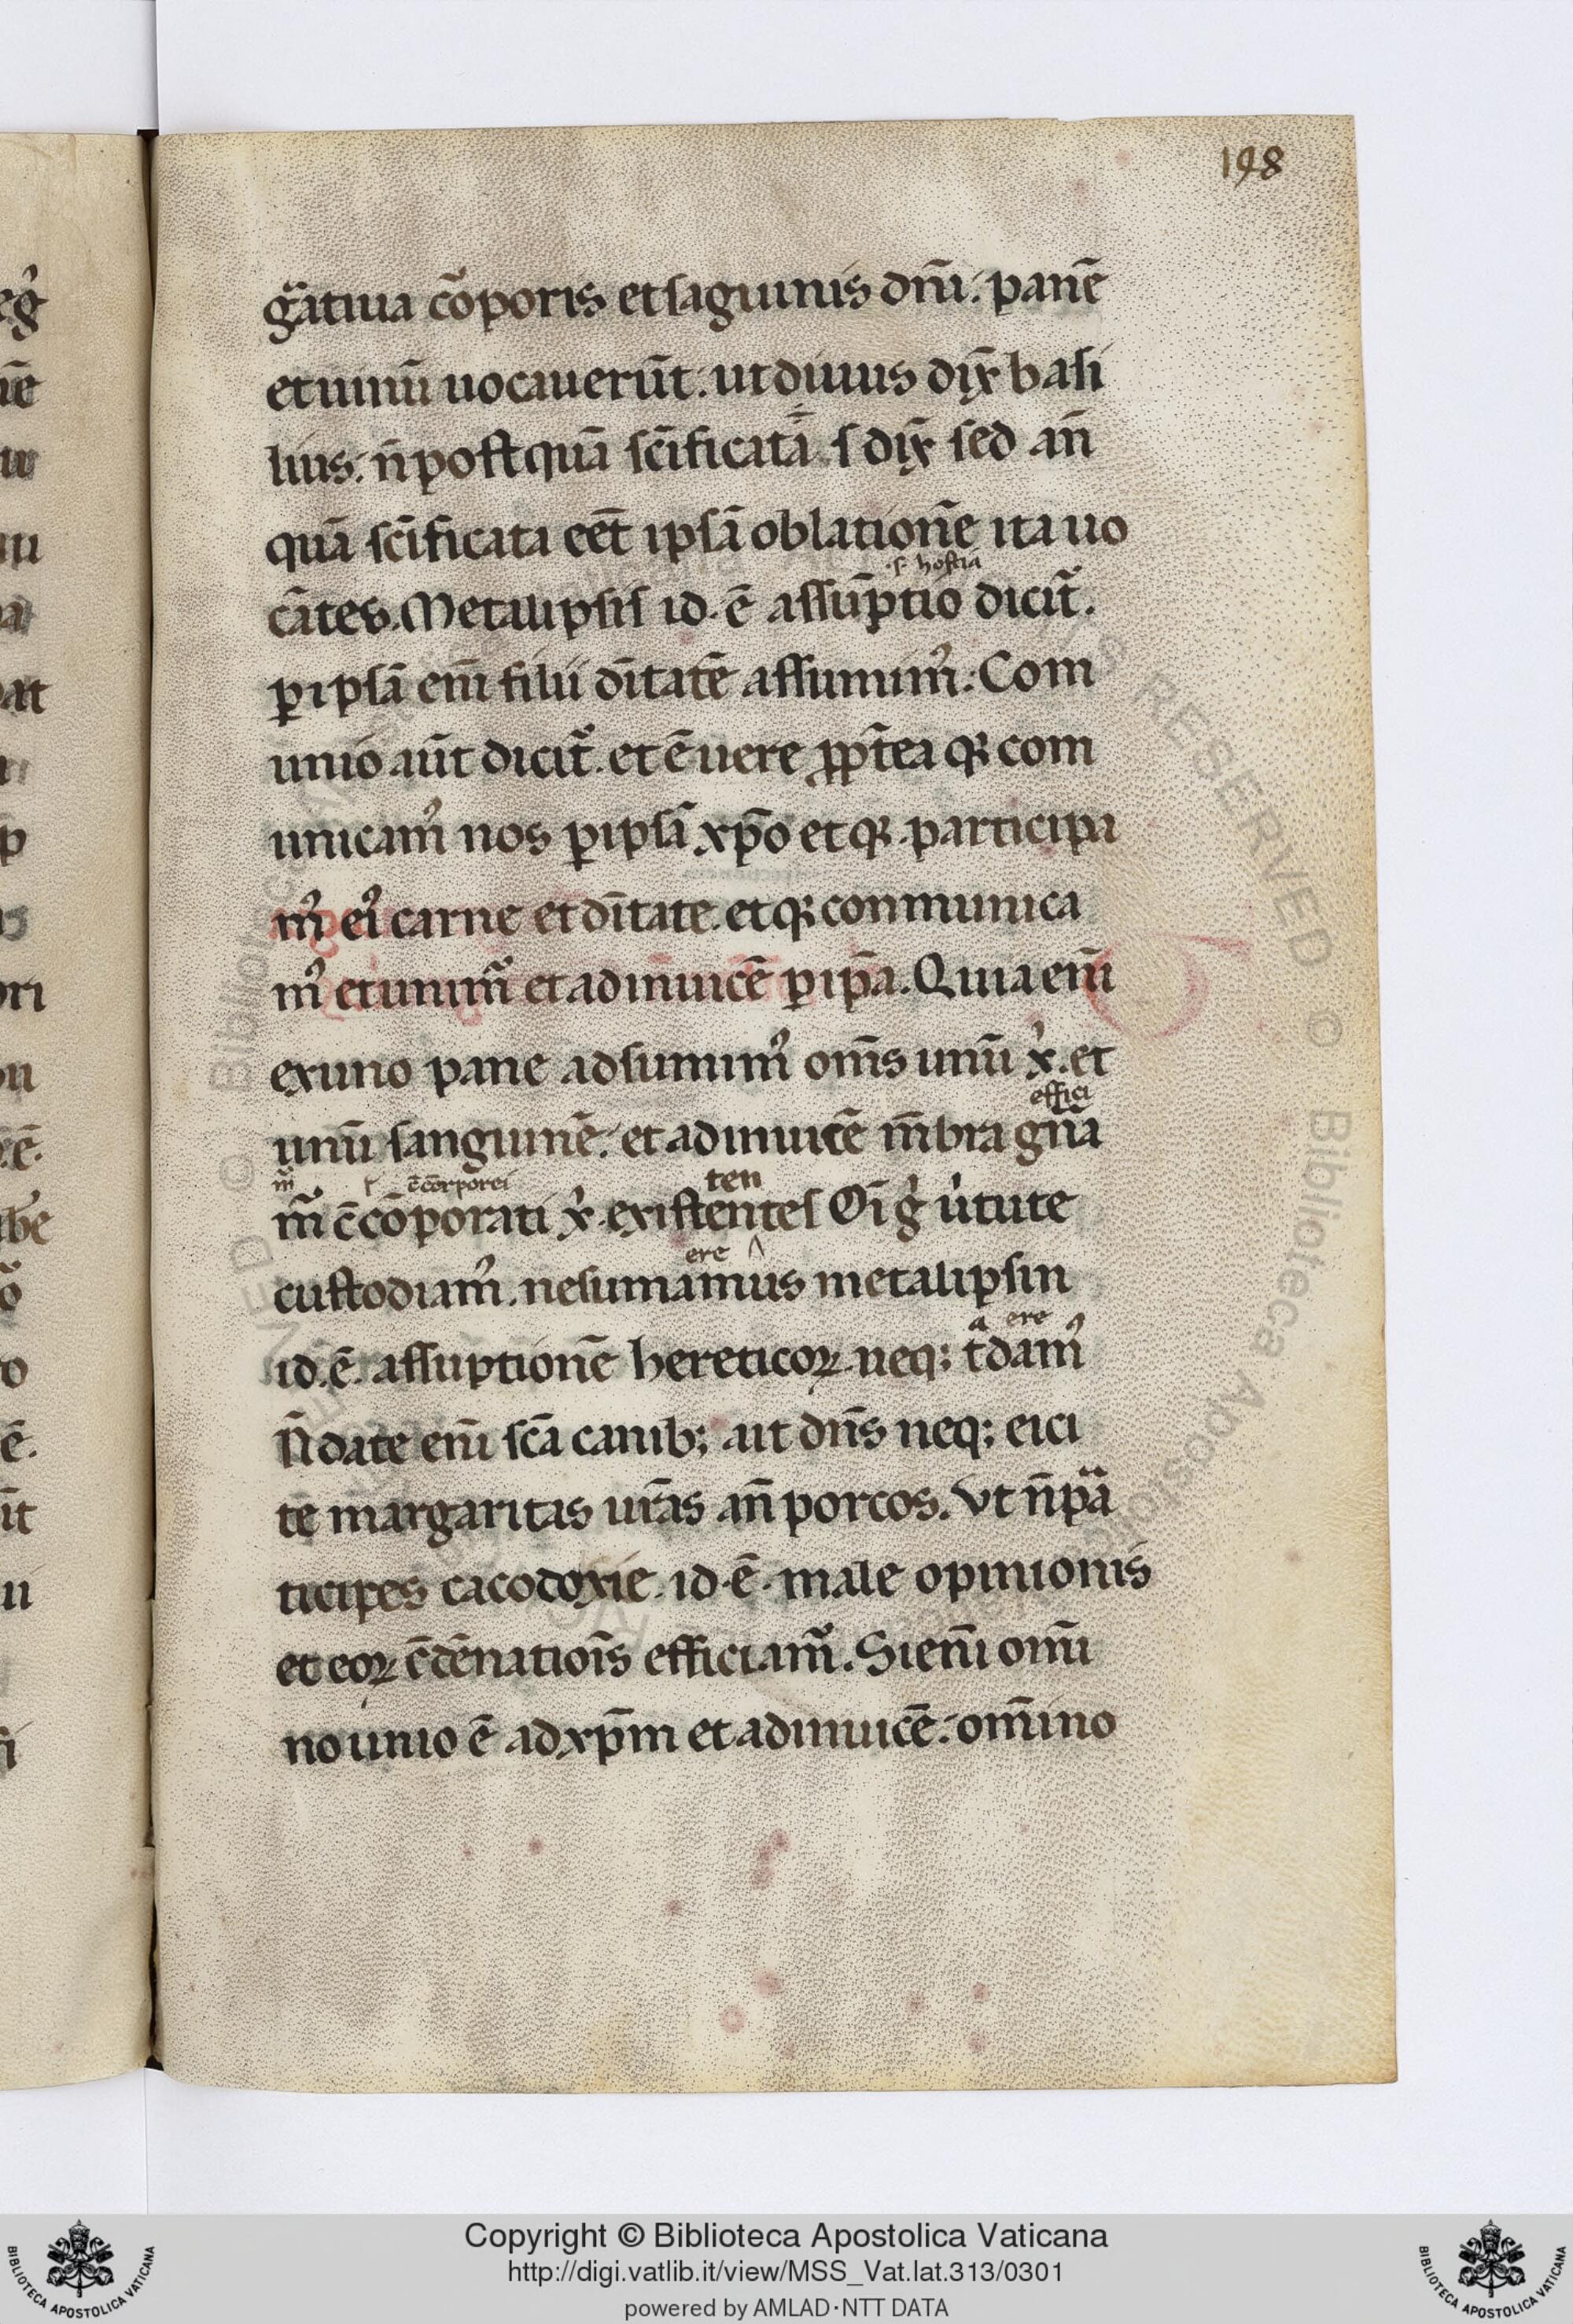 198
gᷓatiua cōporis et saguinis dn̄i: panē
et uinū uocauerūt. ut diuus dix̄ basi
lius: n̄ postquā sc̄ificatā s dix̄ sed an̄
quā sc̄ificata eēt ipsā oblationē ita uo
cātes. Metalipsis id. ē assūptio dicit᷑.
.s. hostia
ꝑ ipsā em̄ filii dītatē assumim᷒: Com
unio aūt dicit᷑. et ē uere ꝓpt̄ea qꝛ com
unicam᷒ nos ꝑ ipsā xp̄o et qꝛ participa
m᷒ ei᷒ carne et dītate. et qꝛ conmunica
m᷒ et unim᷑ et adinuicē ꝑ ip̄a. Quia em̄
ex uno pane adsumim᷒ om̄s unū x̓. et
effici
unū sanguinē: et adinuicē m̄bra gn̄a
m᷑ c̄corporei ten
m᷑ c̄cōporati x̓. existentes Oī g̓ u̓tute
ere
custodiam᷒. ne sumamus metalipsin
a ere
id. ē. assuptionē hereticoꝝ. neq; t̄dam᷒
N̄ date em̄ sc̄a canib; ait dn̄s neq; eici
te margaritas ur̄as an̄ porcos. Vt n̄ pᷓa
ticipes cacodoxie. id. ē. male opinionis
et eoꝝ c̄dēnatiois̄ efficiam᷑. Si em̄ om̄i
no unio ē ad xp̄m et adinuicē: om̄ino
eg̓
at
p
ori
ē.
be
o
ē.
Copyright © Biblioteca Apostolica Vaticana
http://digi.vatlib.it/view/MSS_Vat.lat.313/0301
powered by AMLAD·NTT DATA
BIBLIOTECA APOSTOLICA VATICANA
BIBLIOTECA APOSTOLICA VATICANA